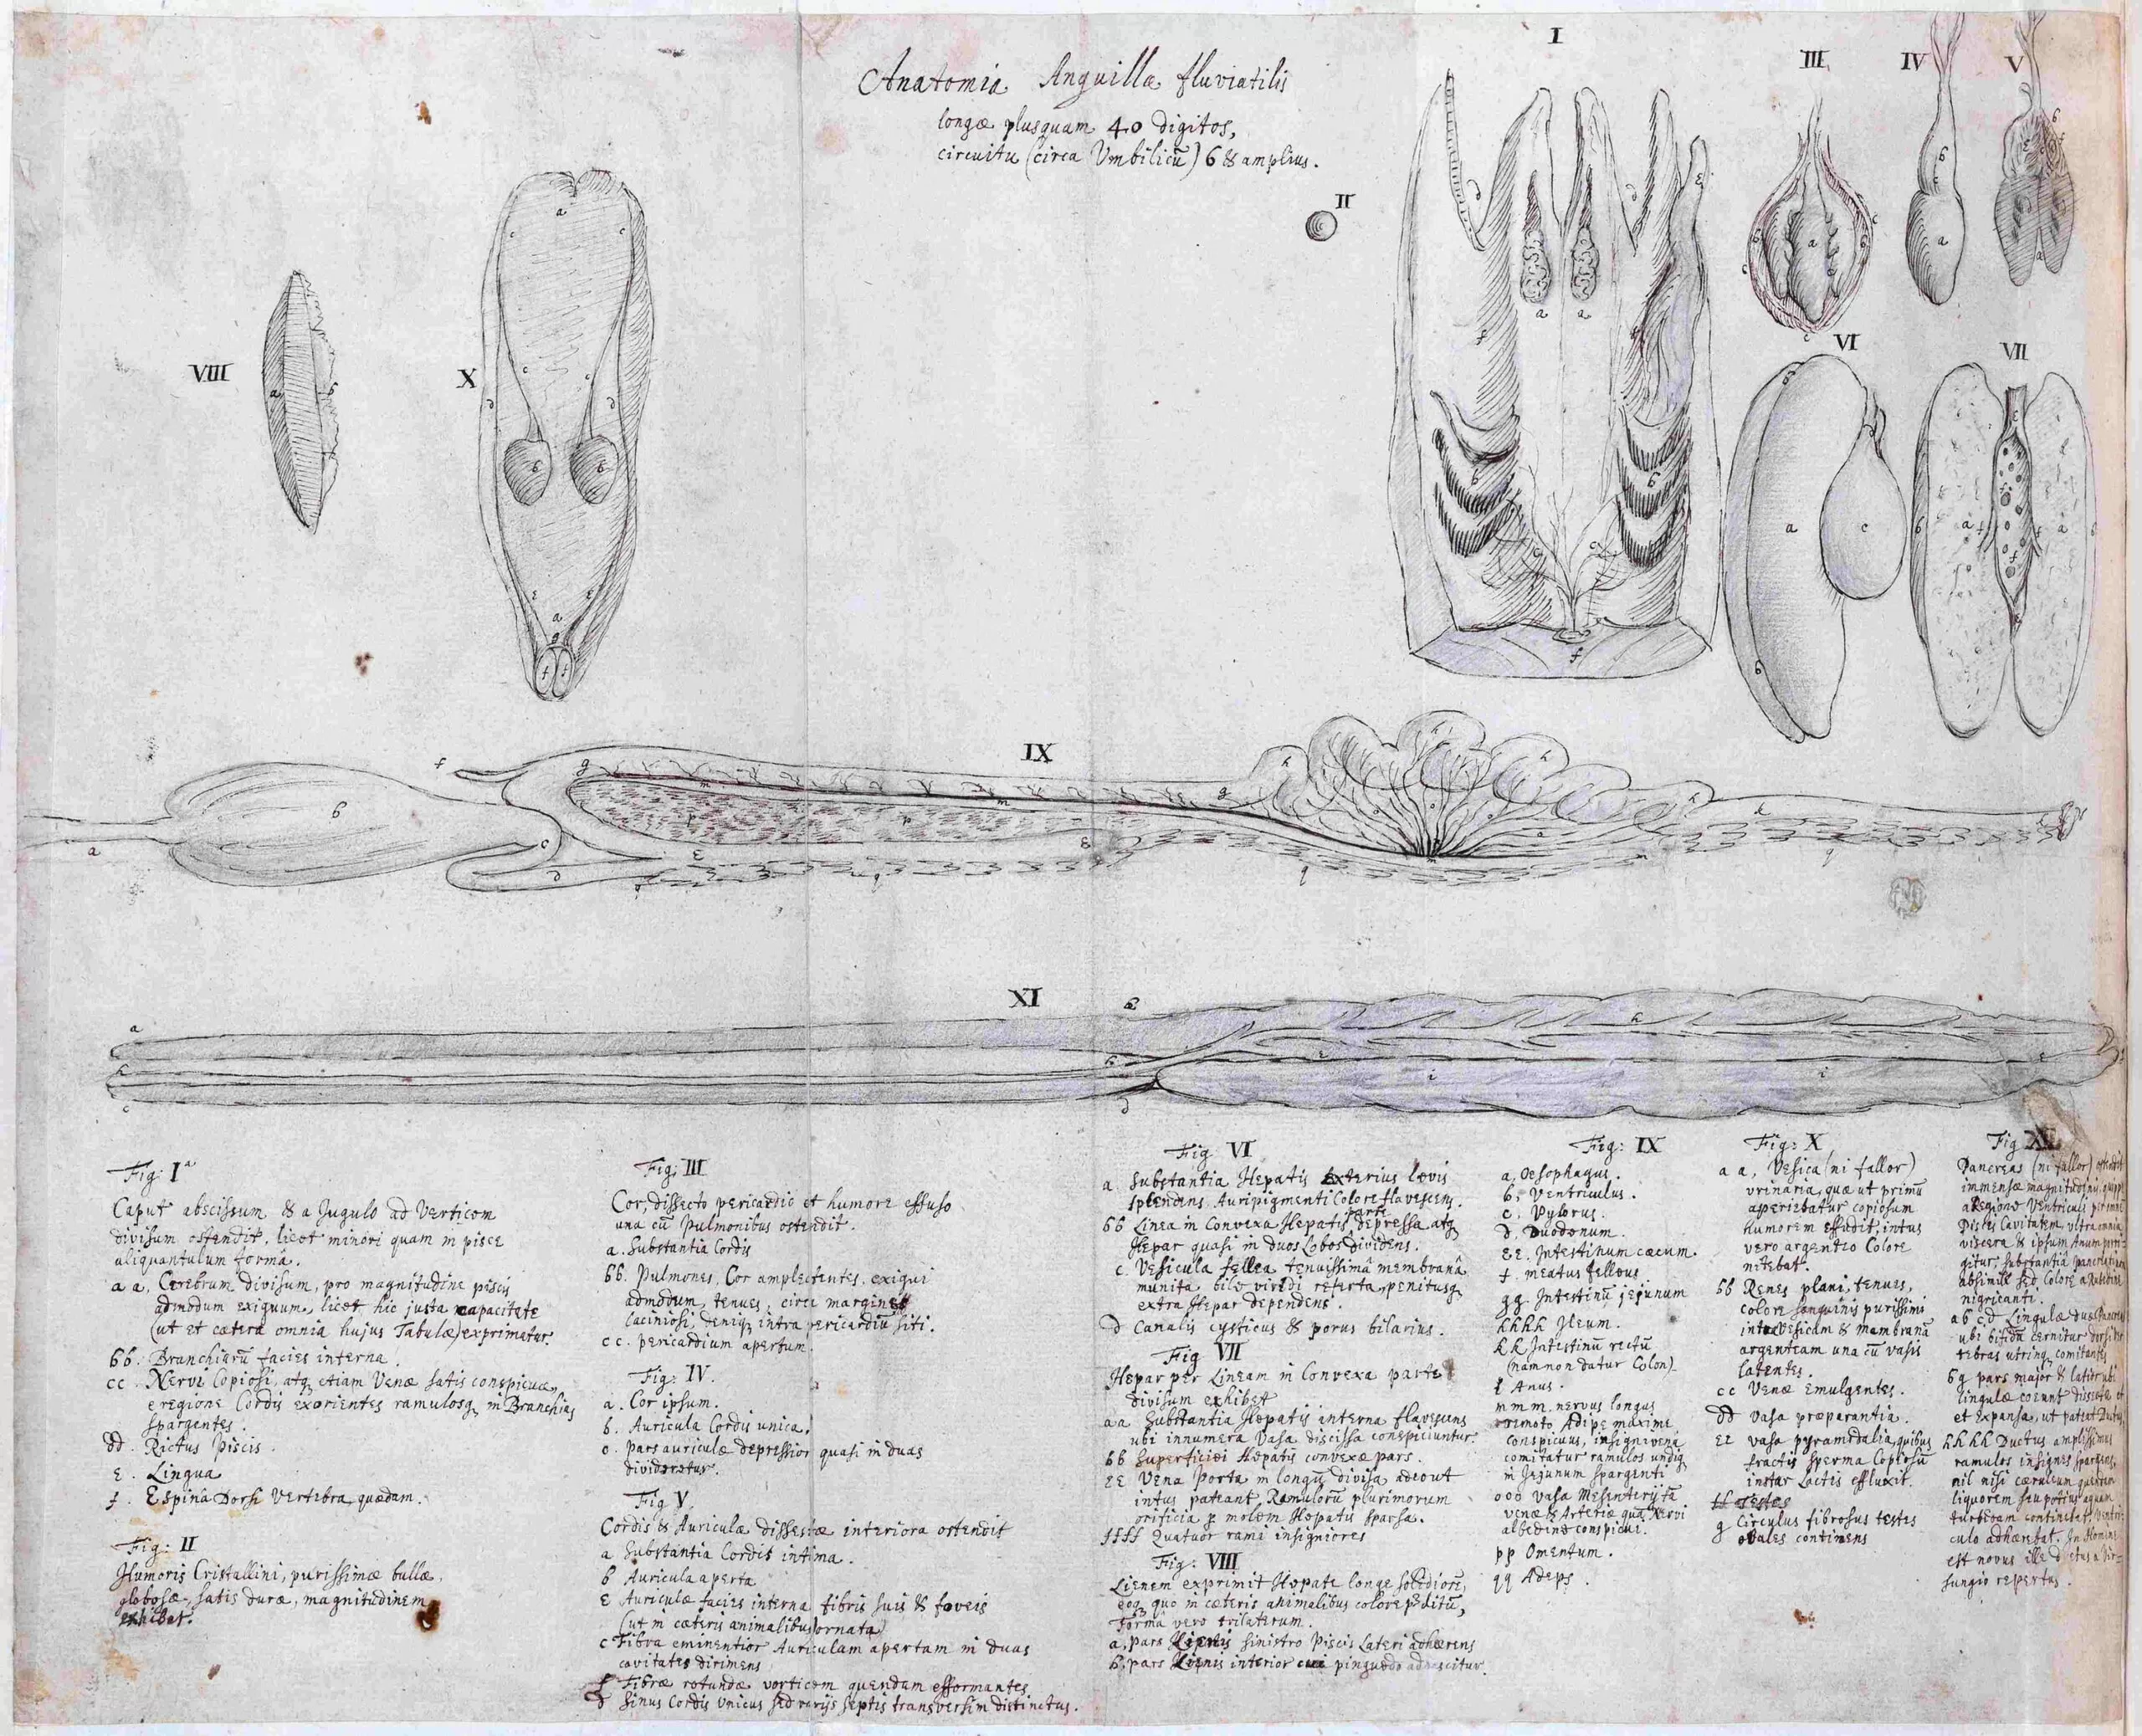 Anatomia Anguillæ fluviatilis
longæ plusquam 40 digitos,
circuitu (circa Umbilicū) 6 & amplius.
I
II
III
IV
V
VI
VII
VIII
X
IX
XI
Fig: Iª
Caput abscissum & a Jugulo ad Verticem
divisum ostendit, licet minori quam in pisce
aliquantulum formâ.
a a, Cerebrum divisum, pro magnitudine piscis
admodum exiguum, licet hic justa capacitate
(ut et cætera omnia hujus Tabulæ) exprimatur.
bb. Branchiarū facies interna.
cc. Nervi Copiosi, atq etiam Venæ satis conspicuæ,
e regione Cordis exorientes ramulosq in Branchias
spargentes.
dd. Rictus Piscis.
e. Lingua
f. Espina Dorsi Vertebra quædam.
Fig: II
Humoris Cristallini, purissimæ bullæ,
globosæ, satis duræ, magnitudinem
exhibet.
Fig: III
Cor, dissecto pericardio et humore effuso
una cū Pulmonibus ostendit.
a. Substantia Cordis
bb. Pulmones, Cor amplectentes, exigui
admodum, tenues, circa margines
laciniosi, deniq intra pericardiū siti.
cc. pericardium apertum.
Fig: IV.
a. Cor ipsum.
b. Auricula Cordis unica.
c. Pars auriculæ depressior quasi in duas
divideretur.
Fig V.
Cordis & Auriculæ dissectæ interiora ostendit
a Substantia Cordis intima.
b Auricula aperta
e Auriculæ facies interna fibris suis & foveis
(ut in cæteris animalibus) ornata
c Fibra eminentior Auriculam apertam in duas
cavitates dirimens
f Fibræ rotundæ vorticem quendam efformantes
d Sinus Cordis Unicus sed varijs septis transversim distinctus.
Fig VI
a Substantia Hepatis exterius lævis
splendens Auripigmenti Colore flavescens.
bb Linea in Convexa Hepatis parte depressa, atq
Hepar quasi in duos Lobos dividens.
c. Vesicula fellea tenuissimâ membranâ
munita, bile viridi referta, penitusq
extra Hepar dependens.
d Canalis cysticus & porus bilarius.
Fig VII
Hepar per Lineam in Convexa parte
divisum exhibet
aa Substantia Hepatis interna flavescens
ubi innumera Vasa discissa conspiciuntur.
bb Superficiei Hepatis convexæ pars.
ee Vena Porta in longū divisa, adeout
intus pateant Ramulorū plurimorum
orificia p molem Hepatis sparsa.
ffff Quatuor rami insigniores
Fig: VIII
Lienem exprimit Hepate longe solidiorē,
eoq quo in cæteris animalibus colore pditū,
formâ vero trilaterum.
a, pars Lienis sinistro Piscis Lateri adhærens
b, pars Lienis interior cui pinguedo adnascitur.
Fig: IX
a, Oesophagus.
b, Ventriculus.
c. Pylorus.
d, Duodenum.
ee. Intestinum cæcum.
f. meatus felleus
gg. Intestinū jejunum
hhhh Ileum.
kk Intestinū rectū
(nam non datur Colon)
l Anus.
mmm. nervus longus
remoto Adipe maxime
conspicuus, insigni venâ
comitatur ramulos undiq
in Jejunum spargenti
ooo Vasa Mesenterij tā
venæ & Arteriæ quā Nervi
albedine conspicui.
pp Omentum.
qq Adeps.
Fig: X
a a, Vesica (ni fallor)
urinaria, quæ ut primū
aperiebatur copiosum
humorem effudit, intus
vero argenteo Colore
nitebat.
bb Renes plani, tenues,
colore sanguinis purissimi
inter Vesicam & membranā
argenteam una cū vasis
latentes.
cc Venæ Emulgentes.
dd Vasa præparantia.
ee vasa pyramidalia, quibus
fractis sperma Copiosū
instar Lactis effluxit.
ff Testes
g Circulus fibrosus testes
ovales continens
Fig XI
Pancreas (ni fallor) ostendit
immensæ magnitudinis, quippe
a Regione Ventriculi per imam
Piscis Cavitatem, ultra omnia
viscera & ipsum Anum
gitur, substantiâ
absimile sed Colore
nigricanti.
ab cd Lingulæ duæ
ubi bifidū cernitur
tebras utrinq comitantes
bg pars major & latior ubi
lingulæ coeunt dissecta et
et Expansa, ut pateat
hhhh Ductus amplissimus
ramulos insignes spargens,
nil nisi cæruleum
liquorem seu potius aquam
turbidam continebat,
culo adhærebat. In Homine
est novus ille Ductus a Vir-
sungio repertus.